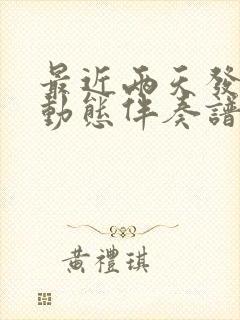 最近兩天發
動態伴奏譜
黃禮琪